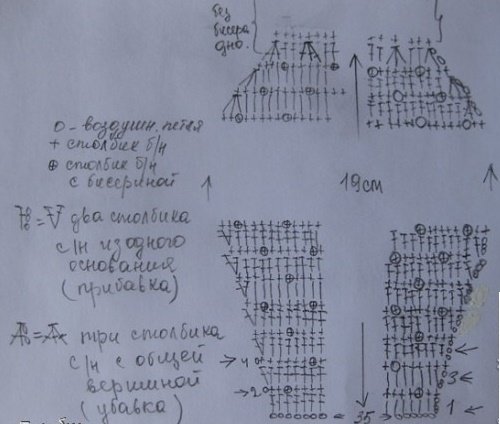 без
бисера
дно.
О - воздушн. петля
+ столбик б/н
⊕ столбик б/н
с бисериной
19 см
= V два столбика
с/н из одного
основания
(прибавка)
= три столбика
с/н с общей
вершиной
(убавка)
4
2
3
35
1